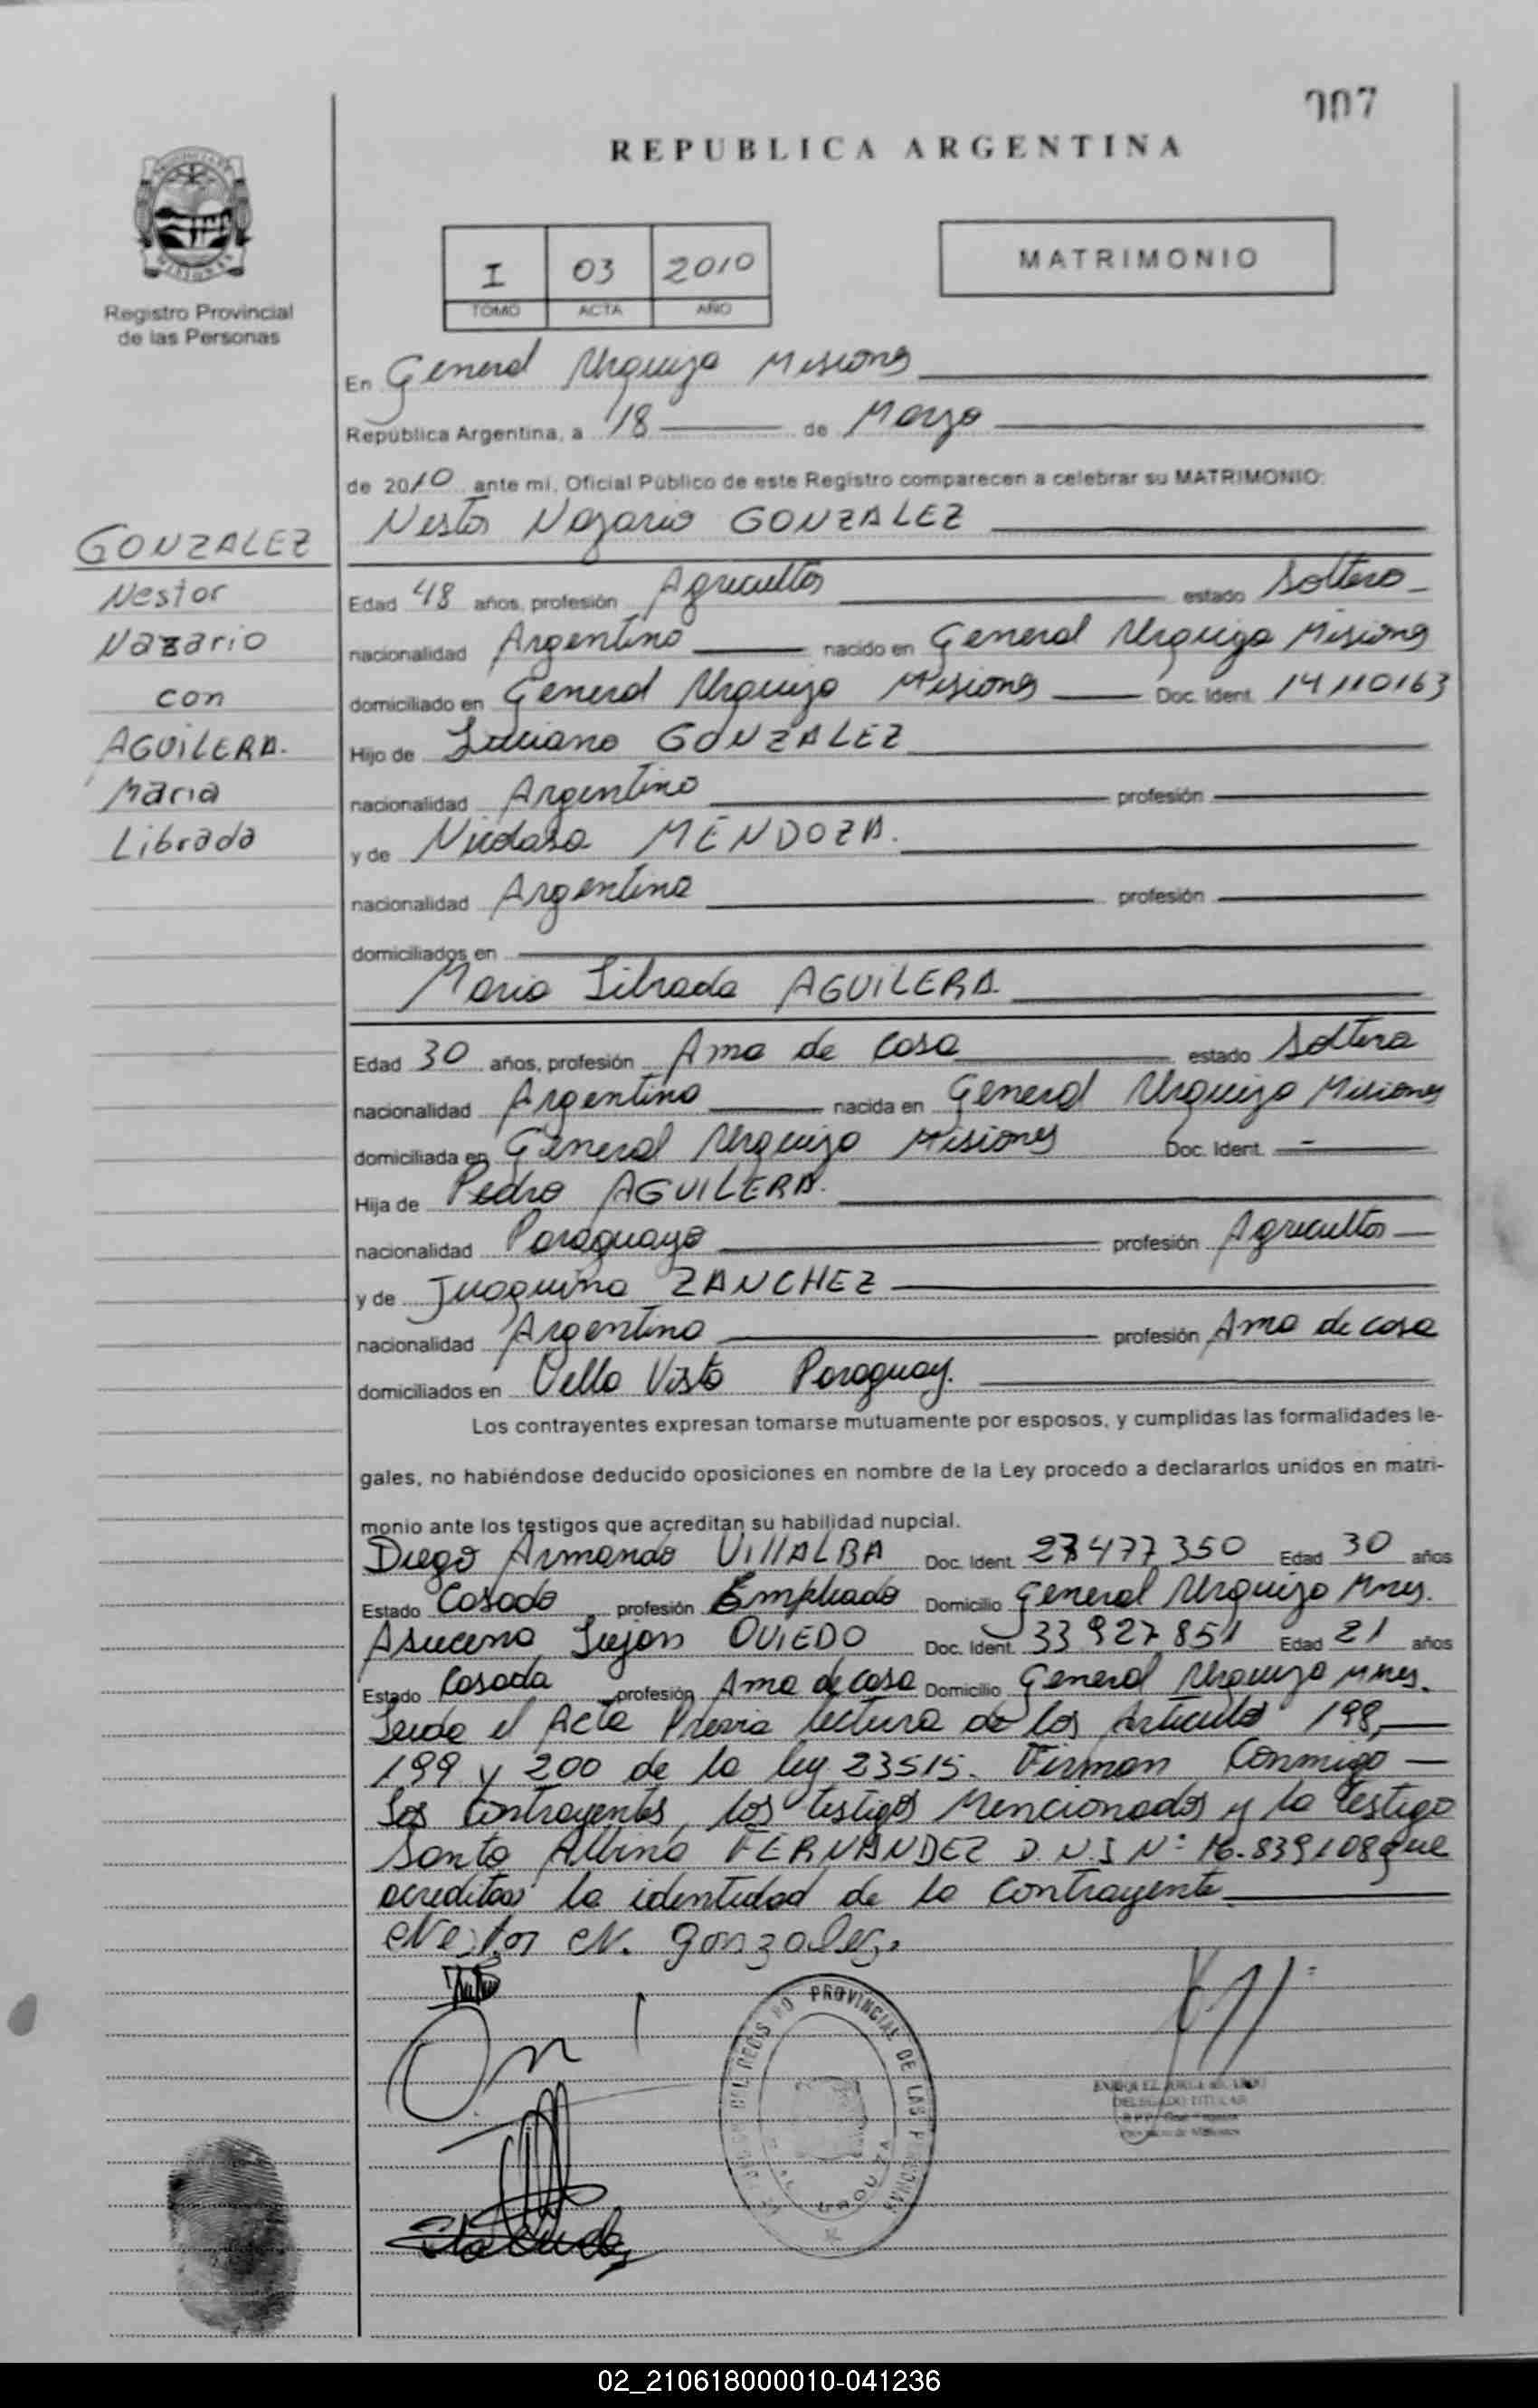 007
REPUBLICA ARGENTINA
Registro Provincial
de las Personas
I 03 2010
TOMO ACTA AÑO
MATRIMONIO
En General Urquiza Misiones
República Argentina, a 18 de Marzo
de 2010 ante mi, Oficial Público de este Registro comparecen a celebrar su MATRIMONIO:
Nestor Nazario GONZALEZ
GONZALEZ
Nestor
Nazario
con
AGUILERA.
Maria
Librada
Edad 48 años, profesión Agricultor estado Soltero
nacionalidad Argentino nacido en General Urquiza Misiones
domiciliado en General Urquiza Misiones Doc. Ident. 14110163
Hijo de Luciano GONZALEZ
nacionalidad Argentino profesión
y de Nicolasa MENDOZA.
nacionalidad Argentina profesión
domiciliados en
Maria Librada AGUILERA
Edad 30 años, profesión Ama de casa estado Soltera
nacionalidad Argentina nacida en General Urquiza Misiones
domiciliada en General Urquiza Misiones Doc. Ident. -
Hija de Pedro AGUILERA.
nacionalidad Paraguayo profesión Agricultor
y de Juaquina ZANCHEZ
nacionalidad Argentina profesión Ama de casa
domiciliados en Vella Vista Paraguay.
Los contrayentes expresan tomarse mutuamente por esposos, y cumplidas las formalidades le-
gales, no habiéndose deducido oposiciones en nombre de la Ley procedo a declararlos unidos en matri-
monio ante los testigos que acreditan su habilidad nupcial.
Diego Armando VillALBA Doc. Ident. 27477350 Edad 30 años
Estado Casado profesión Empleado Domicilio General Urquiza Mnes.
Asucena Lujan OVIEDO Doc. Ident. 33927851 Edad 21 años
Estado Casada profesión Ama de casa Domicilio General Urquiza Mnes.
Leida el Acta Previa lectura de los Articulos 198,
199 y 200 de la ley 23515. Firman Conmigo
Los Contrayentes, los testigos Mencionados y la testigo
Santa Albina FERNANDEZ D.N.I N° 16.839108 que
acreditan la identidad de la Contrayente
Nestor N. gonzalez.
PROVINCIAL DE LAS PERSONAS
DELEGADO TITULAR
02_210618000010-041236